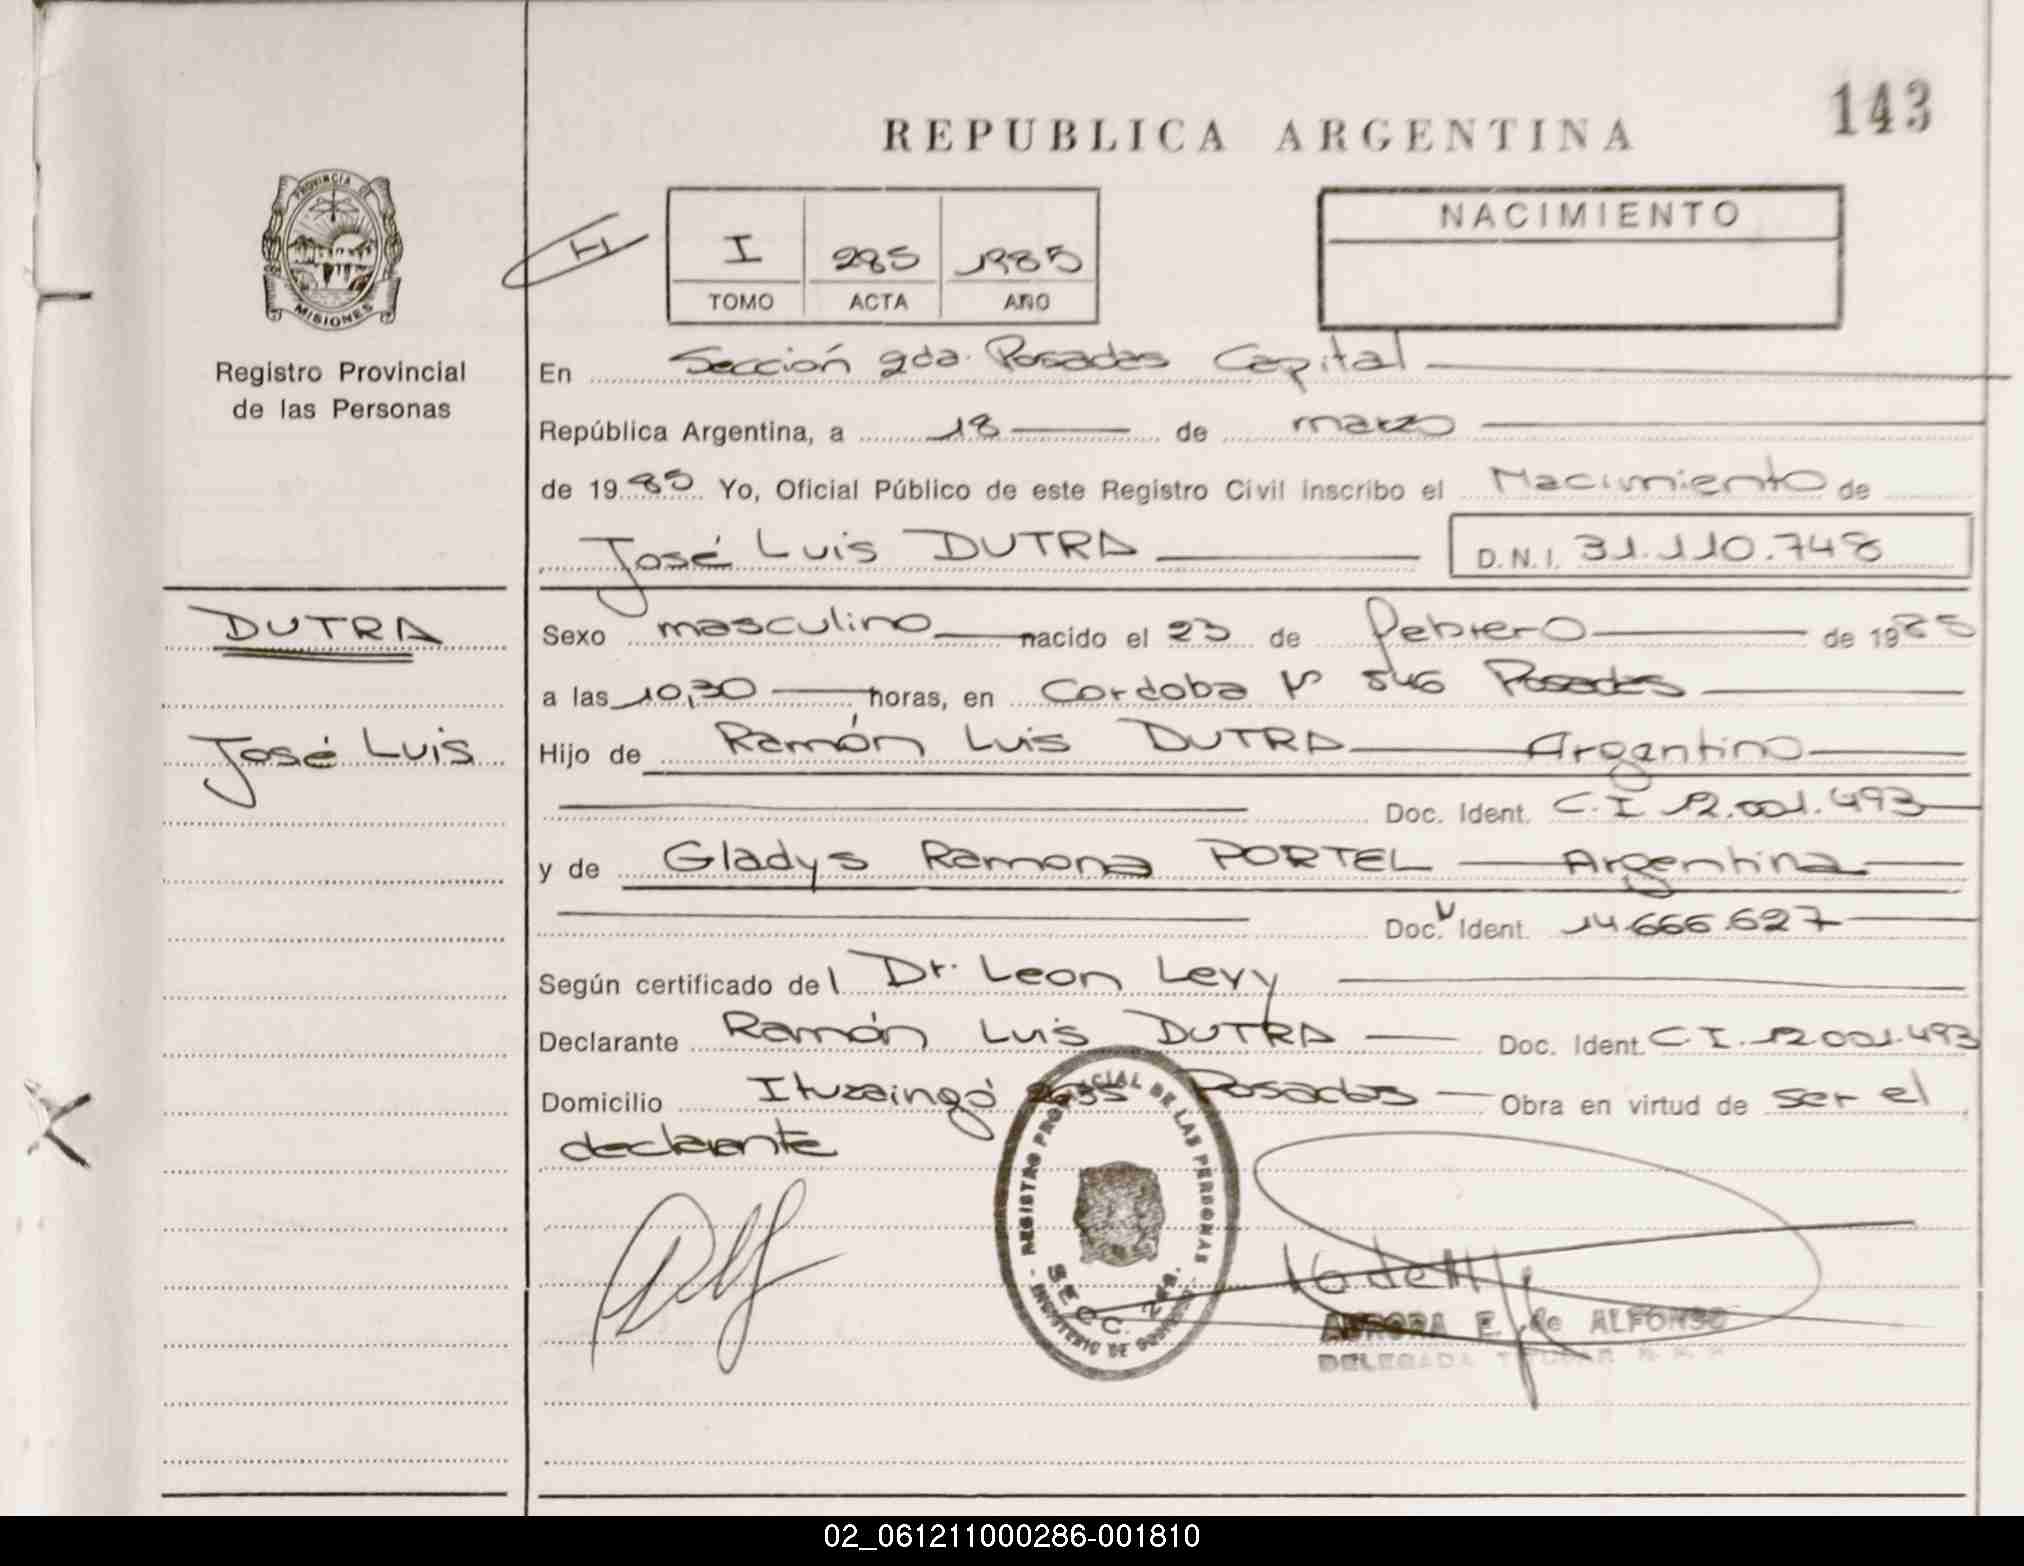 143
REPUBLICA ARGENTINA
PROVINCIA DE
MISIONES
Registro Provincial
de las Personas
I 285 1985
TOMO ACTA AÑO
NACIMIENTO
En Sección 2da. Posadas Capital
República Argentina, a 18 de marzo
de 1985 Yo, Oficial Público de este Registro Civil inscribo el Nacimiento de
José Luis DUTRA D.N.I. 31.110.748
DUTRA
José Luis
Sexo masculino nacido el 23 de febrero de 1985
a las 10,30 horas, en Cordoba Nº 546 Posadas
Hijo de Ramón Luis DUTRA Argentino
Doc. Ident. C.I 12.001.493
y de Gladys Ramona PORTEL Argentina
Doc. Ident. 14.666.627
Según certificado del Dr. Leon Levy
Declarante Ramón Luis DUTRA Doc. Ident. C.I. 12.001.493
Domicilio Ituzaingó Posadas Obra en virtud de ser el
declarante
REGISTRO PROVINCIAL DE LAS PERSONAS
SECC. 2da.
MINISTERIO DE GOBIERNO
AURORA E. de ALFONSO
DELEGADA TITULAR
02_061211000286-001810